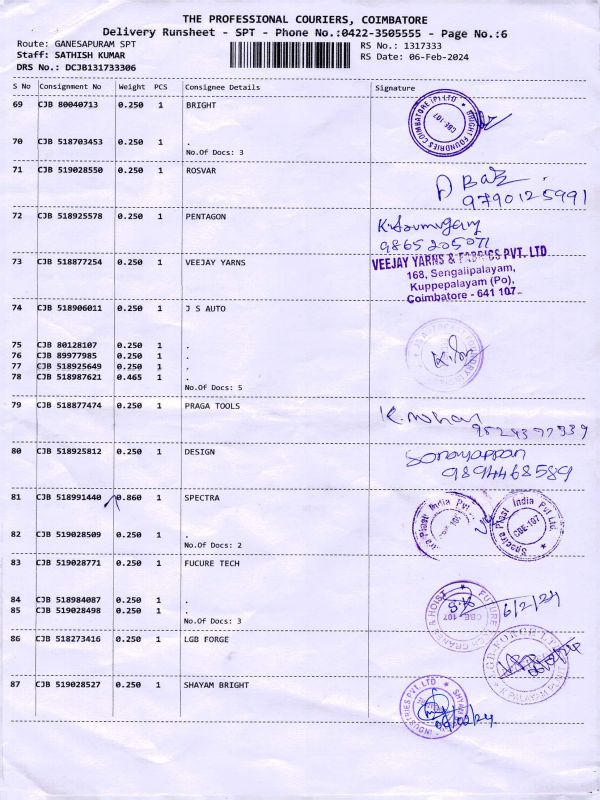 THE PROFESSIONAL COURIERS, COIMBATORE
Delivery Runsheet - SPT - Phone No.:0422-3505555 - Page No.:6
Route: GANESAPURAM SPT
RS No.: 1317333
Staff: SATHISH KUMAR
RS Date: 06-Feb-2024
DRS No.: DCJB131733306
S No Consignment No Weight PCS Consignee Details Signature
69 CJB 80040713 0.250 1 BRIGHT
BRIGHT FOUNDRIES COIMBATORE (P) LTD
CBE-107
70 CJB 518703453 0.250 1 .
No.Of Docs: 3
71 CJB 519028550 0.250 1 ROSVAR
9790125991
72 CJB 518925578 0.250 1 PENTAGON
9865205071
73 CJB 518877254 0.250 1 VEEJAY YARNS
VEEJAY YARNS & FABRICS PVT. LTD
168, Sengalipalayam,
Kuppepalayam (Po),
Coimbatore - 641 107
74 CJB 518906011 0.250 1 J S AUTO
75 CJB 80128107 0.250 1 .
76 CJB 89977985 0.250 1 .
77 CJB 518925649 0.250 1 .
78 CJB 518987621 0.465 1 .
No.Of Docs: 5
79 CJB 518877474 0.250 1 PRAGA TOOLS
K. Mohan
80 CJB 518925812 0.250 1 DESIGN
9894468589
81 CJB 518991440 0.860 1 SPECTRA
Plast India Pvt
Spectra Plast India Pvt Ltd
CBE-107
82 CJB 519028509 0.250 1 .
No.Of Docs: 2
83 CJB 519028771 0.250 1 FUCURE TECH
84 CJB 518984087 0.250 1 .
85 CJB 519028498 0.250 1 .
No.Of Docs: 3
FUTURE
CRANES & HOIST
CBE-107
6/2/24
86 CJB 518273416 0.250 1 LGB FORGE
87 CJB 519028527 0.250 1 SHAYAM BRIGHT
INDUSTRIES PVT LTD
06/02/24